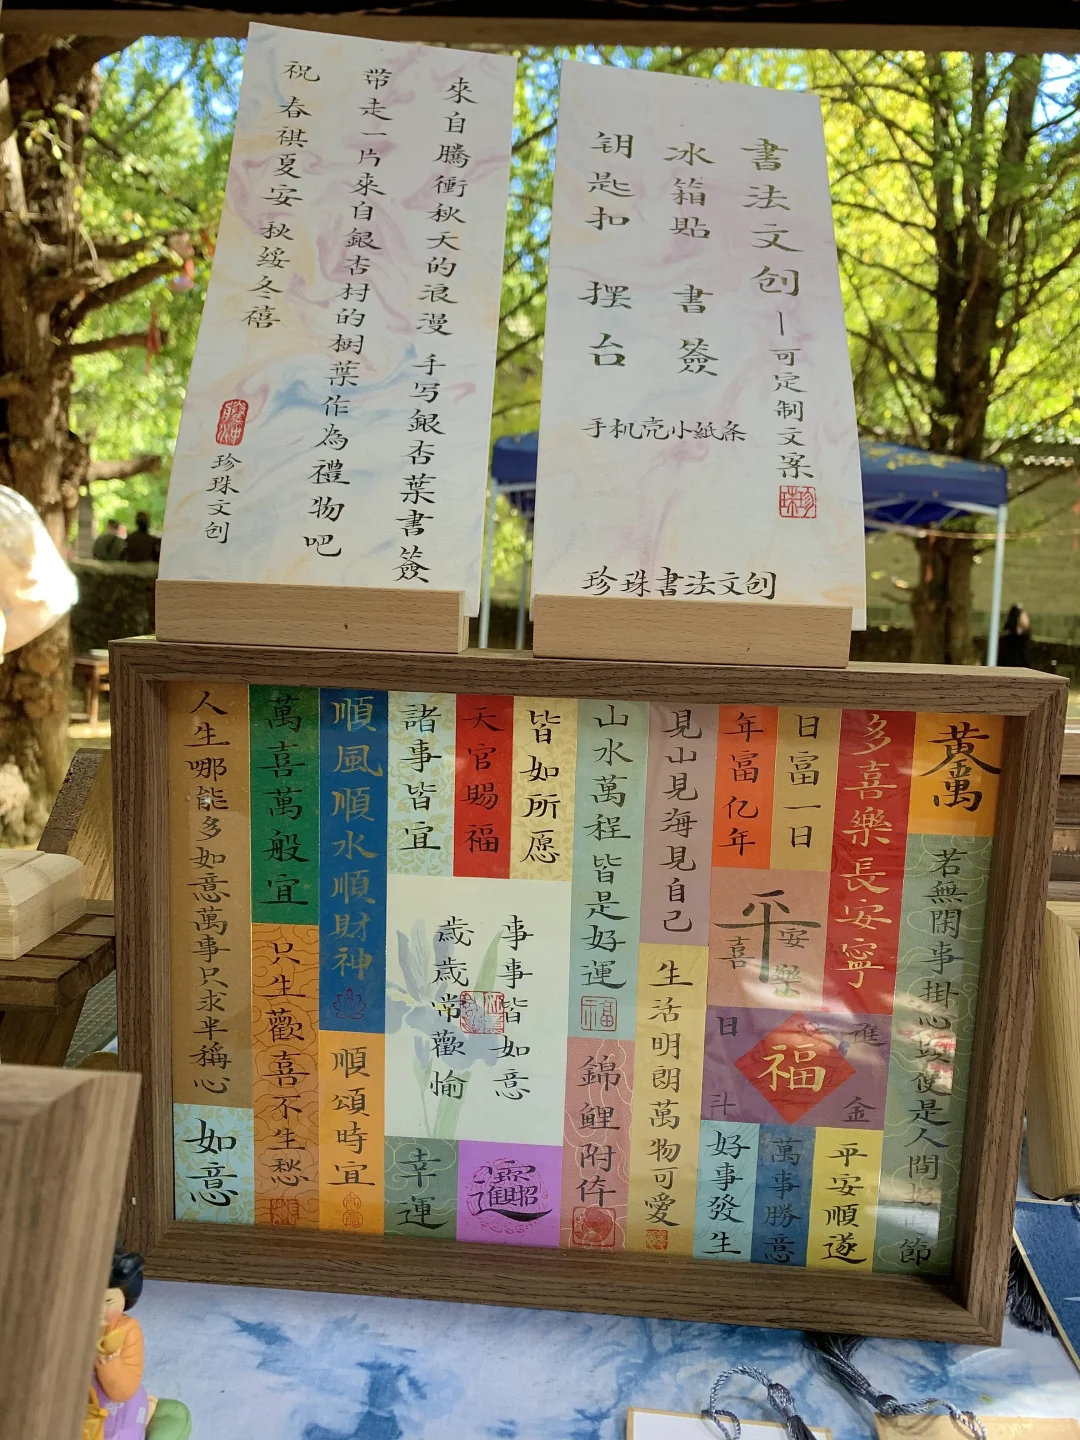 來自騰衝秋天的浪漫 手写銀杏葉書簽
带走一片來自銀杏村的树葉作為禮物吧
祝 春祺夏安 秋绥冬禧
珍珠文创
書法文创—可定制文案
冰箱貼 書簽
钥匙扣 摆台
手机壳小紙条
珍珠書法文创
黄萬
若無閑事掛心頭便是人間好時節
多喜樂長安寧
日富一日
年富亿年
平安喜樂
日進斗金
福
平安順遂
萬事勝意
好事發生
見山見海見自己
生活明朗萬物可愛
山水萬程皆是好運
福
錦鲤附体
皆如所愿
天官賜福
諸事皆宜
事事皆如意
歲歲常歡愉
招財進寶
幸運
順風順水順財神
順頌時宜
萬喜萬般宜
只生歡喜不生愁
人生哪能多如意萬事只求半稱心
如意